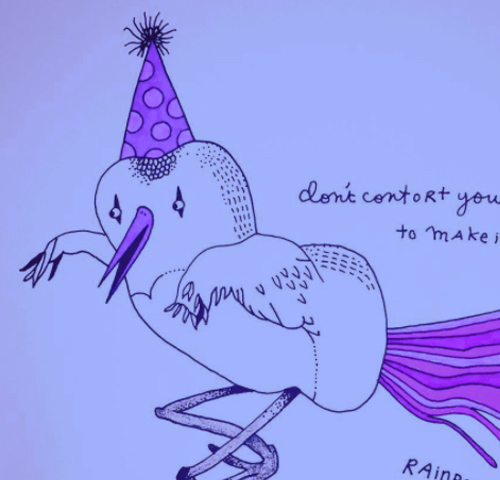 don't contort you
to make i
RAinb